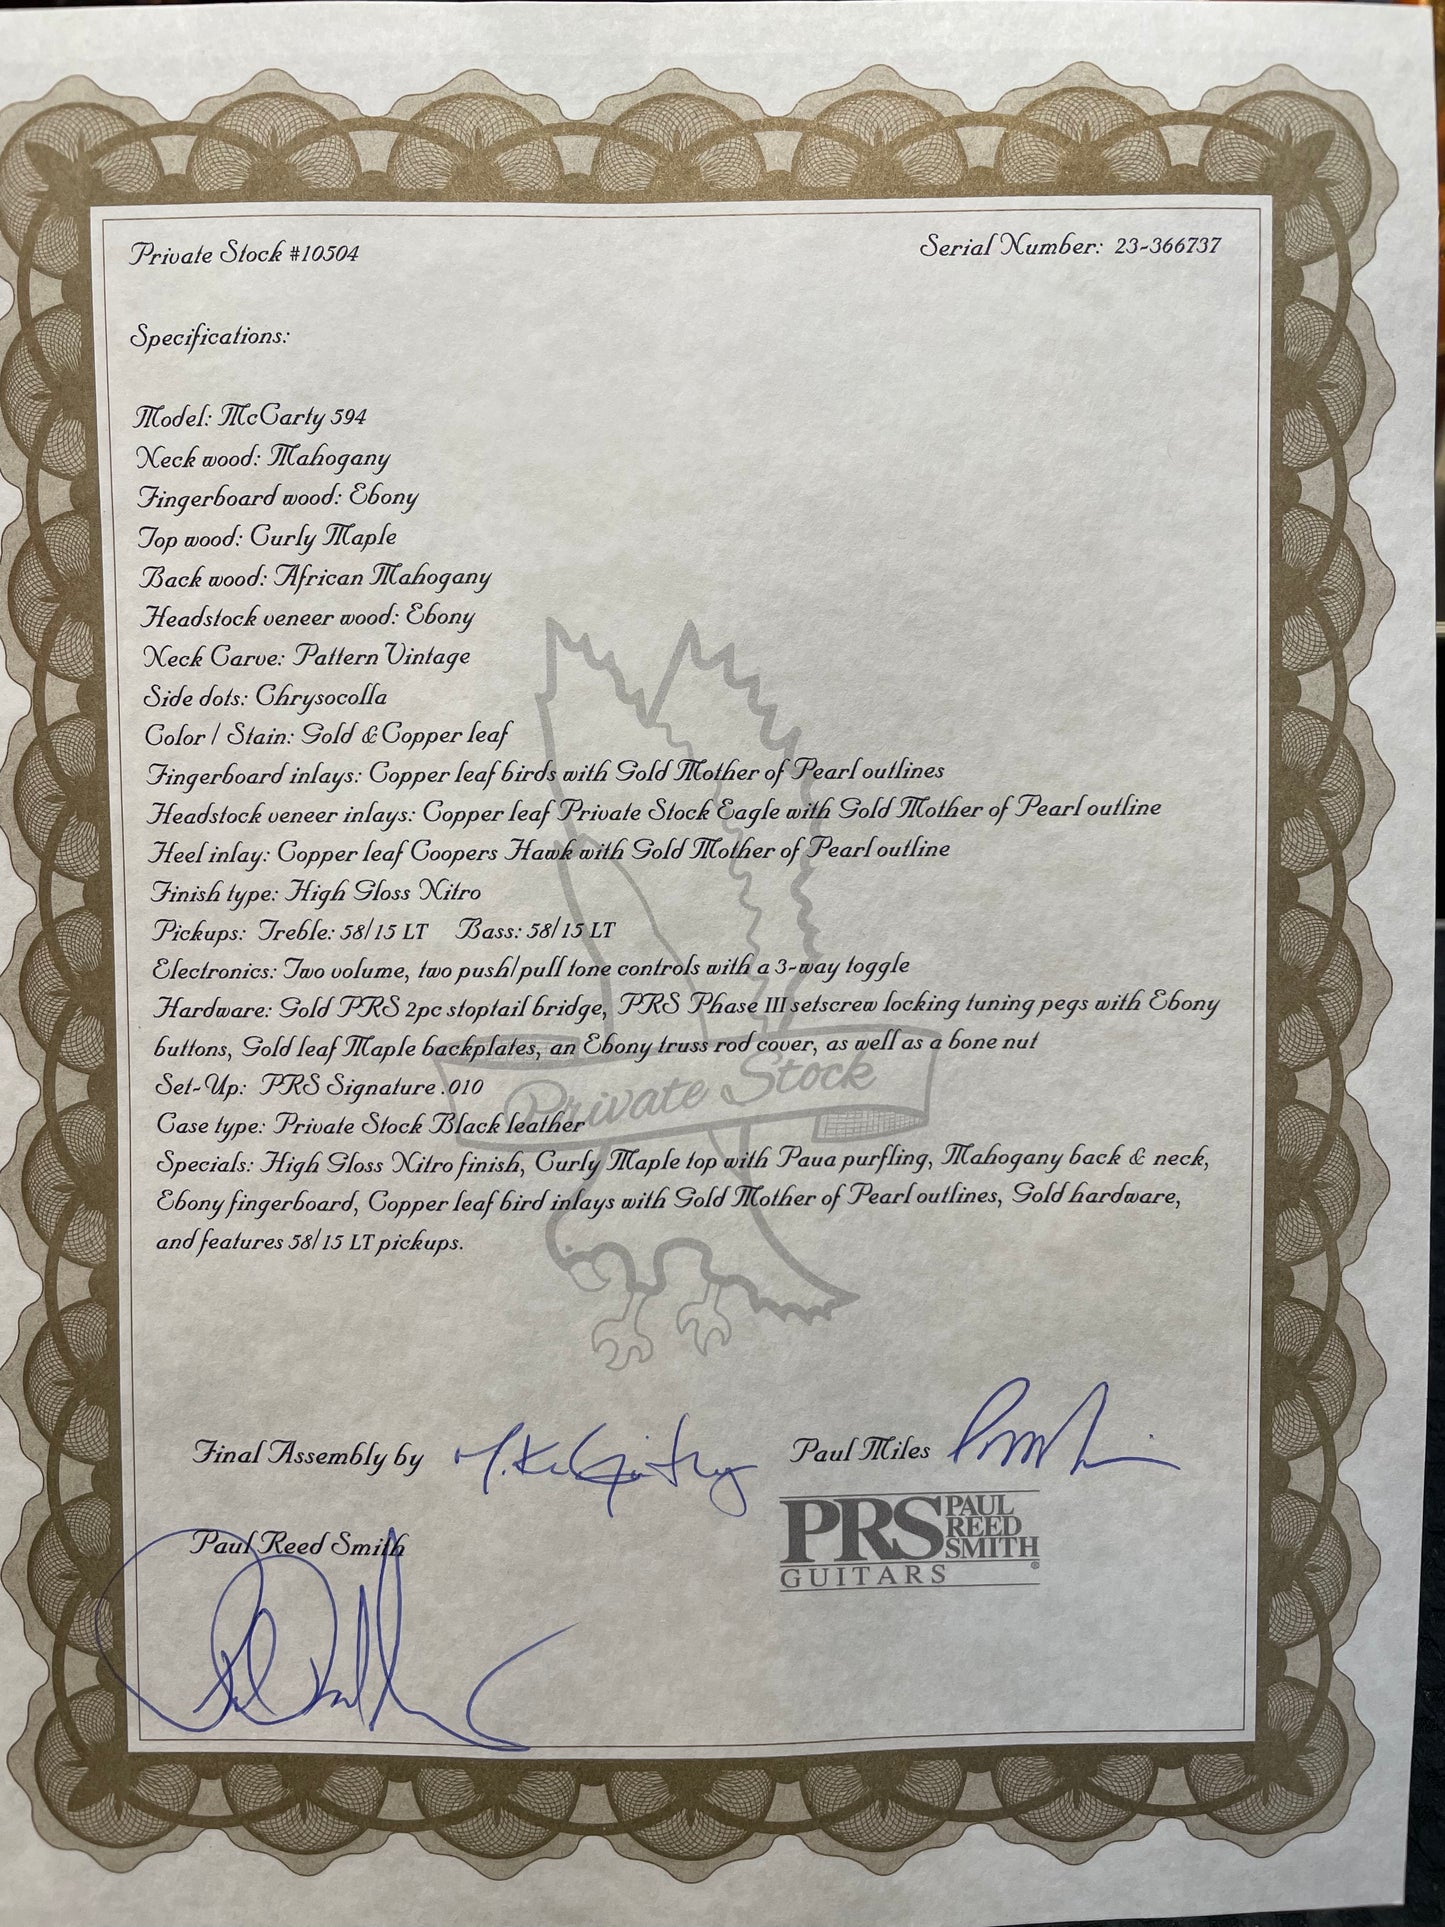 Private Stock #10504
Serial Number: 23-366737
Specifications:
Model: McCarty 594
Neck wood: Mahogany
Fingerboard wood: Ebony
Top wood: Curly Maple
Back wood: African Mahogany
Headstock veneer wood: Ebony
Neck Carve: Pattern Vintage
Side dots: Chrysocolla
Color / Stain: Gold & Copper leaf
Fingerboard inlays: Copper leaf birds with Gold Mother of Pearl outlines
Headstock veneer inlays: Copper leaf Private Stock Eagle with Gold Mother of Pearl outline
Heel inlay: Copper leaf Coopers Hawk with Gold Mother of Pearl outline
Finish type: High Gloss Nitro
Pickups: Treble: 58/15 LT Bass: 58/15 LT
Electronics: Two volume, two push/pull tone controls with a 3-way toggle
Hardware: Gold PRS 2pc stoptail bridge, PRS Phase III setscrew locking tuning pegs with Ebony
buttons, Gold leaf Maple backplates, an Ebony truss rod cover, as well as a bone nut
Private Stock
Set-Up: PRS Signature .010
Case type: Private Stock Black leather
Specials: High Gloss Nitro finish, Curly Maple top with Paua purfling, Mahogany back & neck,
Ebony fingerboard, Copper leaf bird inlays with Gold Mother of Pearl outlines, Gold hardware,
and features 58/15 LT pickups.
Final Assembly by
Paul Miles
Paul Reed Smith
PRS PAUL
REED
SMITH
GUITARS